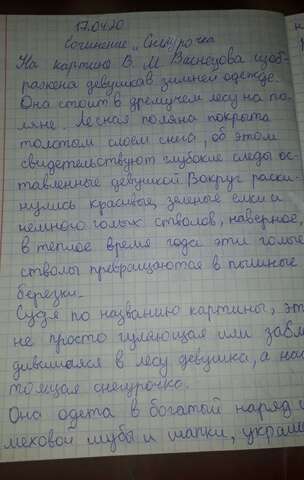 17.04.20
Сочинение „Снегурочка
На картине В. М. Васнецова изоб-
ражена девушка в зимней одежде.
Она стоит в дремучем лесу на по-
ляне. Лесная поляна покрыта
толстым слоем снега, об этом
свидетельствуют глубокие следы ос-
тавленные девушкой Вокруг раски-
нулись красивые, зеленые елки и
немного голых стволов, наверное,
в теплое время года эти голые
стволы превращаются в пышные
березки.
Судя по названию картины, эт
не просто гуляющая или забл
дившаяся в лесу девушка, а нас
тоящая снегурочка.
Она одета в богатый наряд и
меховой шубы и шапки, украше